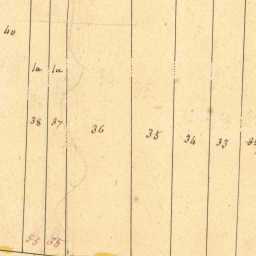 40
1a 1a
38 37 36 35 34 33